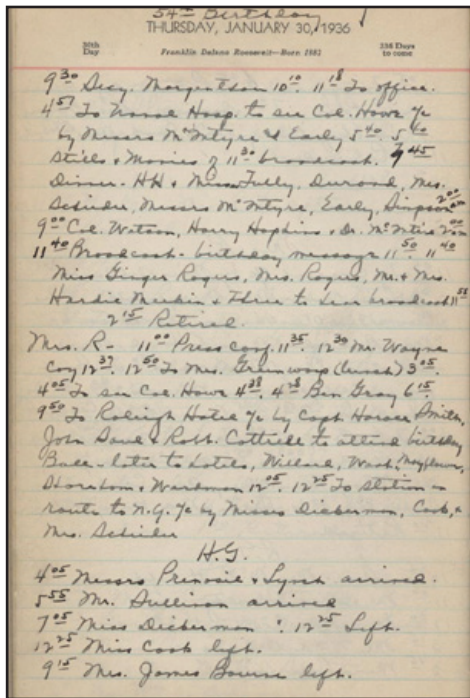 54th Birthday
THURSDAY, JANUARY 30, 1936
30th Day
Franklin Delano Roosevelt—Born 1882
336 Days to come
9 30 Secy. Morgenthau 10 10. 11 18 To office.
4 57 To Naval Hosp. to see Col. Howe %
by Messrs McIntyre & Early 5 40. 5
Stills & Movies of 11 30 broadcast. 7 45
Dinner - HH & Miss Tully, Durand, Mrs.
Scheider, Messrs McIntyre, Early, Simpson 2 00 am
9 00 Col. Watson, Harry Hopkins & Dr. McIntire 2 00 am
11 40 Broadcast - birthday message 11 50. 11 40
Miss Ginger Rogers, Mrs. Rogers, Mr. & Mrs.
Hardie & three to hear broadcast 11 55
2 15 Retired.
Mrs. R - 11 00 Press conf. 11 35. 12 30 Mr. Wayne
Coy 12 37. 12 50 To Mrs. (lunch) 3 05.
4 05 To see Col. Howe 4 38. 4 28 Ben Gray 6 15.
9 50 To Raleigh Hotel % by Capt. Horace Smith,
John & Robt. Cottrell to attend birthday
Ball - later to Hotels, Willard, Wash. Mayflower,
Shoreham & Wardman 12 05. 12 25 To station en
route to N.Y. % by Misses Dickerman, Cook, &
Mrs. Scheider
H.G.
4 05 Messrs & Lynch arrived.
5 55 Mr. Sullivan arrived
7 05 Miss Dickerman " . 12 25 Left.
12 25 Miss Cook left.
9 15 Mrs. James Bourne left.